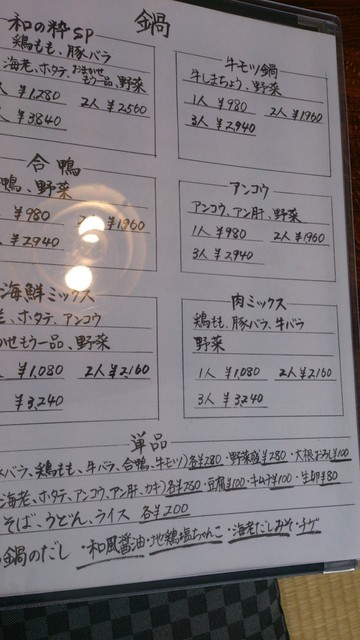 鍋
和の粋SP
鶏もも、豚バラ
海老、ホタテ、おまかせもう一品、野菜
人 ¥1,280 2人 ¥2,560
人 ¥3,840
牛モツ鍋
牛しまちょう、野菜
1人 ¥980 2人 ¥1,960
3人 ¥2,940
合鴨
鴨、野菜
¥980 ¥1,960
¥2,940
アンコウ
アンコウ、アン肝、野菜
1人 ¥980 2人 ¥1,960
3人 ¥2,940
海鮮ミックス
老、ホタテ、アンコウ
かせもう一品、野菜
人 ¥1,080 2人 ¥2,160
¥3,240
肉ミックス
鶏もも、豚バラ、牛バラ
野菜
1人 ¥1,080 2人 ¥2,160
3人 ¥3,240
単品
バラ、鶏もも、牛バラ、合鴨、牛モツ)各¥280・野菜盛¥280・大根おろし¥100
海老、ホタテ、アンコウ、アン肝、カキ)各¥250・豆腐¥100・キムチ¥100・生卵¥80
そば、うどん、ライス 各¥200
鍋のだし・和風醤油・地鶏塩ちゃんこ・海老だしみそ・チゲ